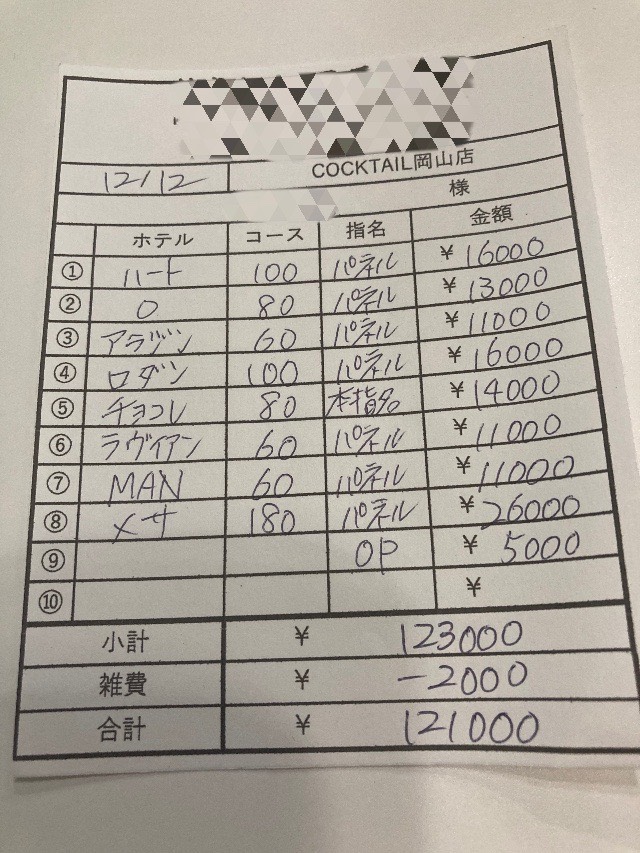 COCKTAIL岡山店
12/12
様
ホテル コース 指名 金額
① ハート 100 パネル ¥ 16000
② O 80 パネル ¥ 13000
③ アラジン 60 パネル ¥ 11000
④ ロダン 100 パネル ¥ 16000
⑤ チョコレ 80 本指名 ¥ 14000
⑥ ラヴィアン 60 パネル ¥ 11000
⑦ MAN 60 パネル ¥ 11000
⑧ メサ 180 パネル ¥ 26000
⑨ OP ¥ 5000
⑩ ¥
小計 ¥ 123000
雑費 ¥ -2000
合計 ¥ 121000